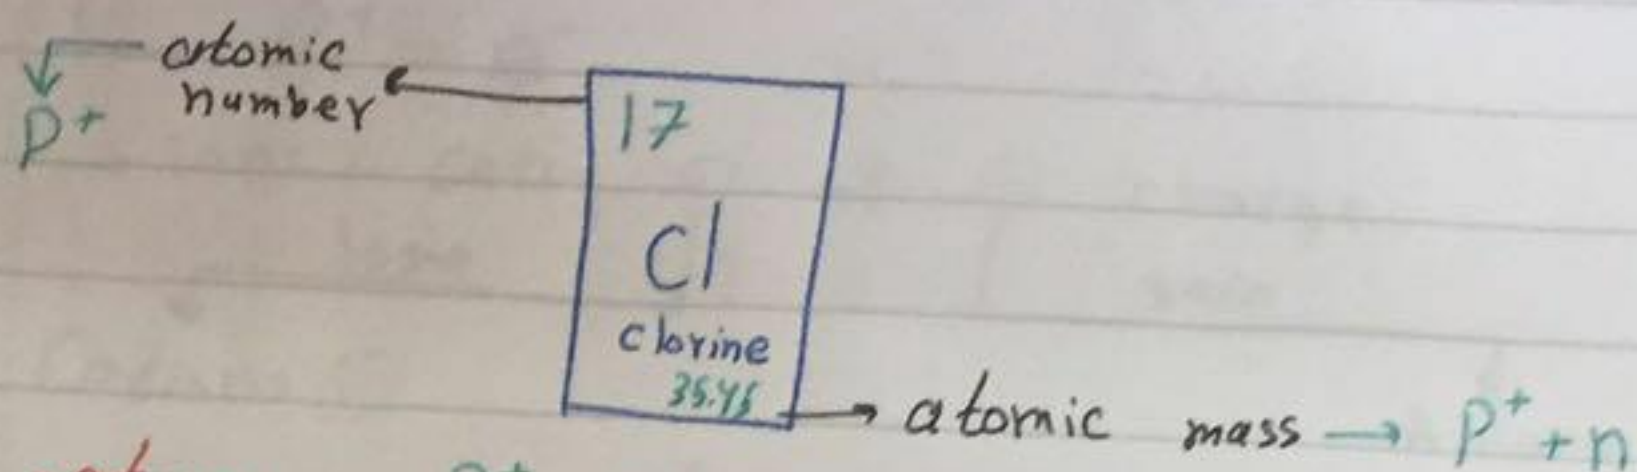 atomic
number
P+
17
Cl
clorine
35.45
atomic mass → P+ + n